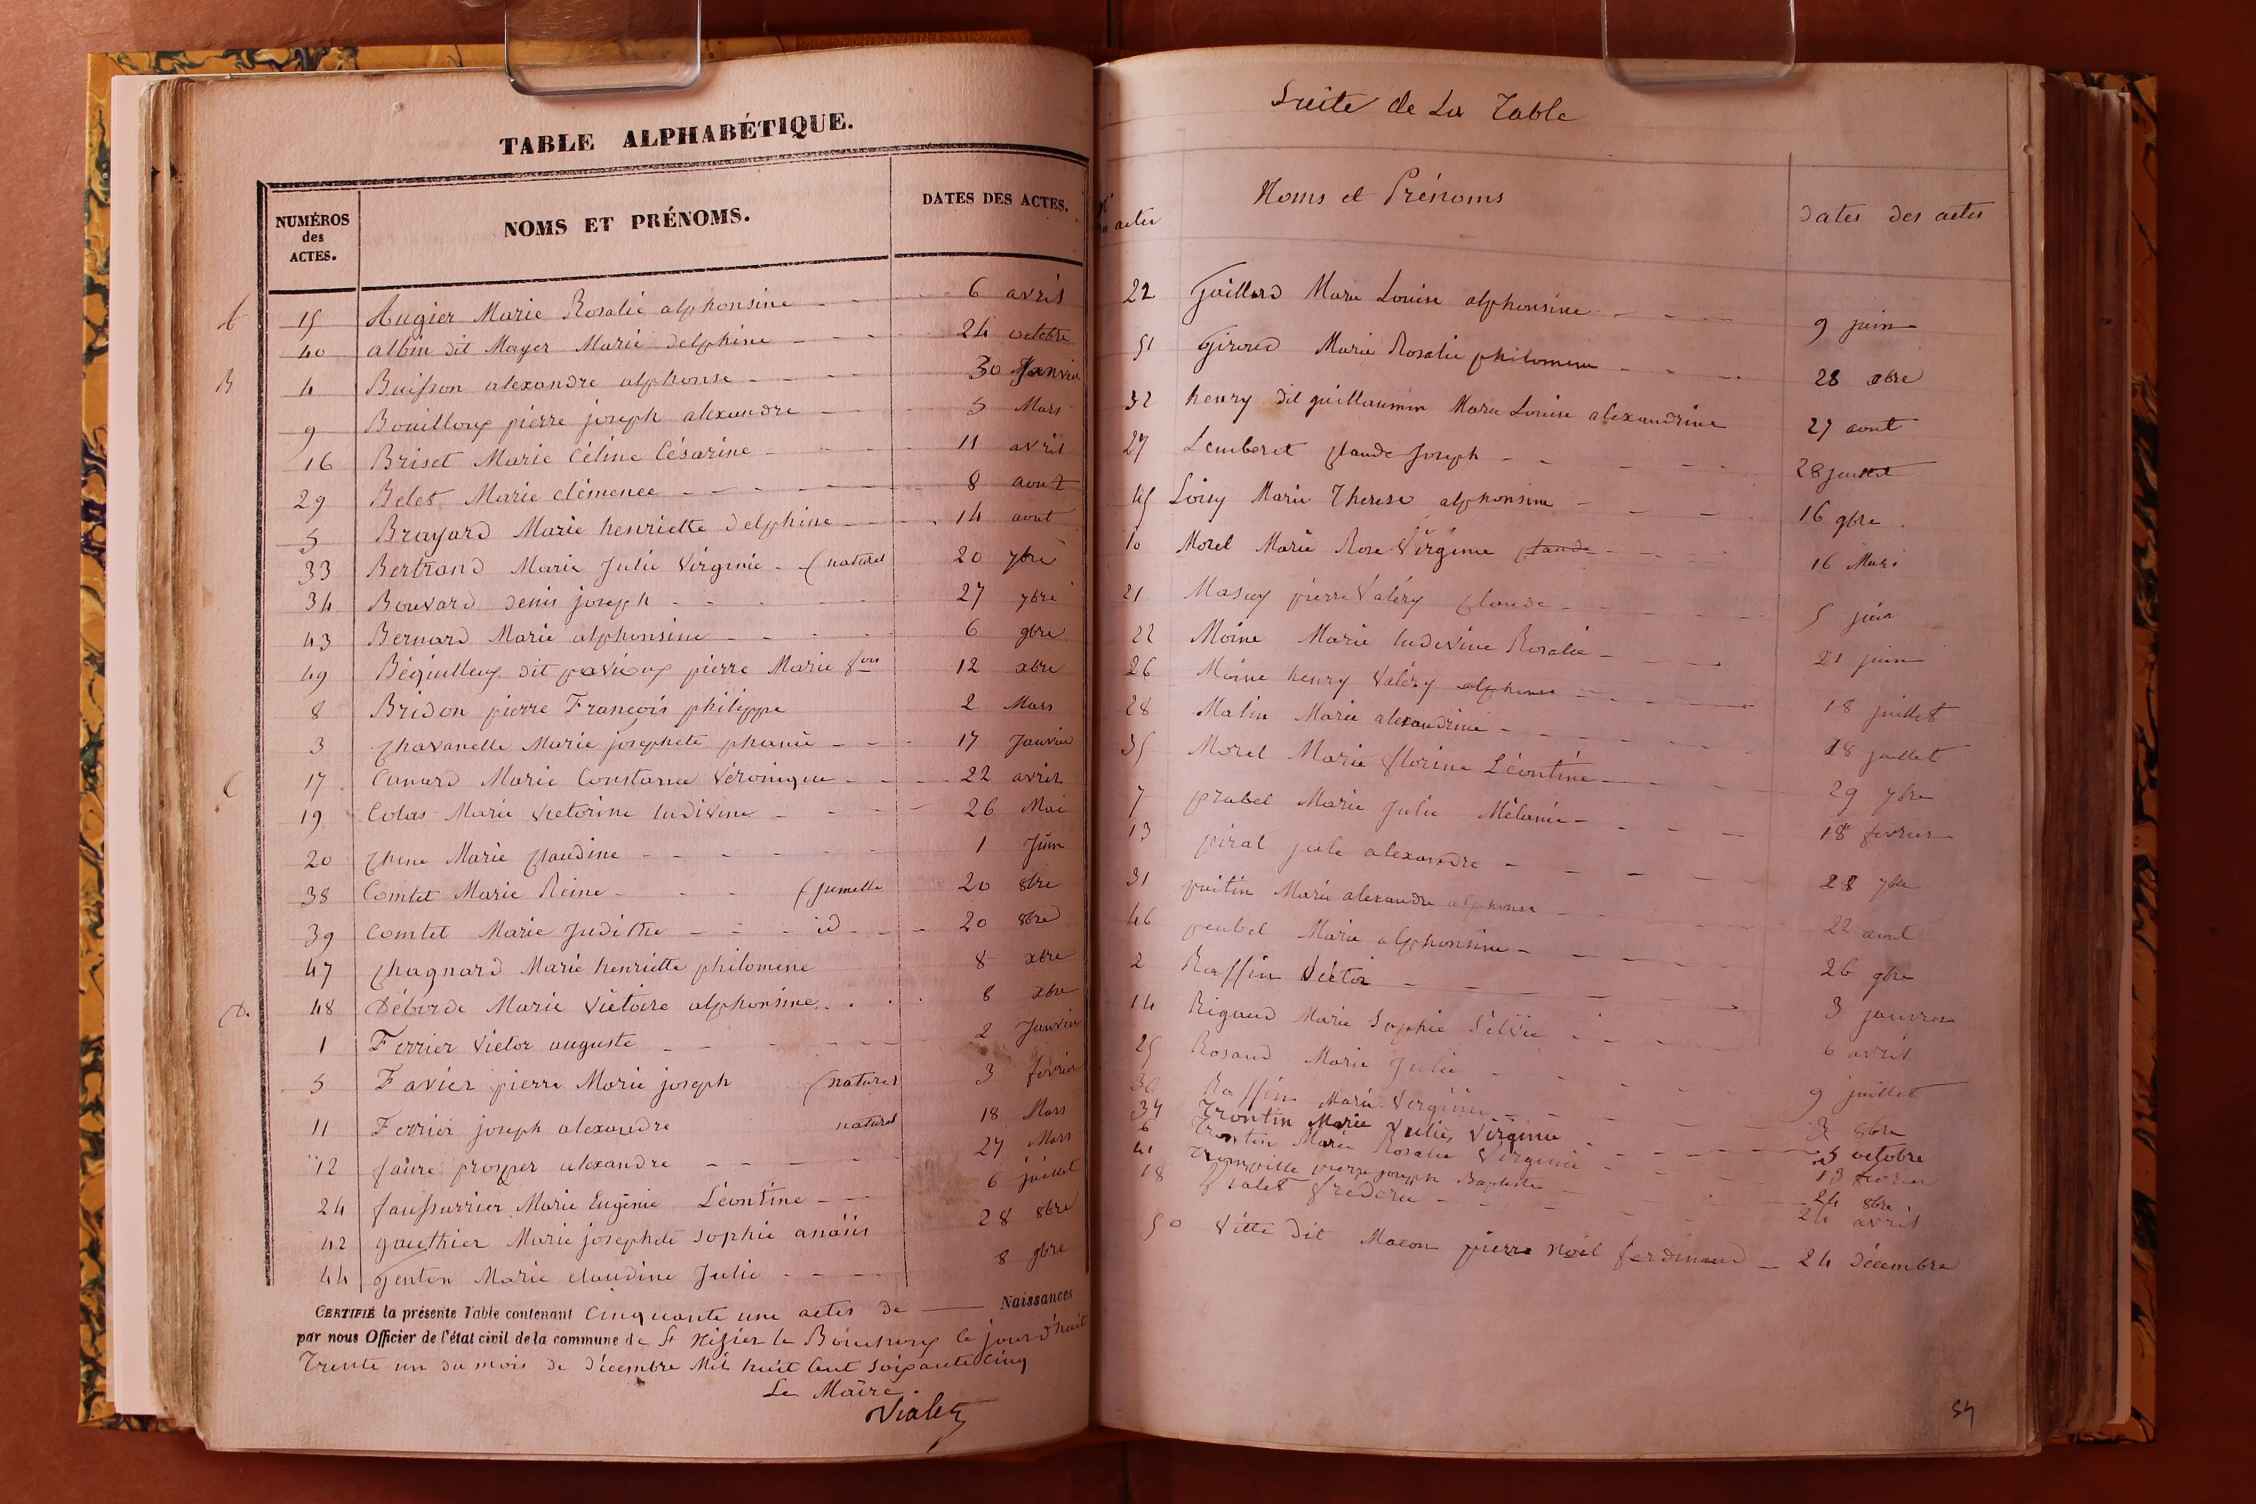 TABLE ALPHABÉTIQUE.
NUMÉROS des ACTES. NOMS ET PRÉNOMS. DATES DES ACTES.
A 15 Augier Marie Rosalie alphonsine 6 avril
40 albin dit Mayer Marie delphine 24 octobre
B 4 Buisson alexandre alphonse 30 Janvier
9 Bouilloux pierre joseph alexandre 5 Mars
16 Briset Marie Céline Césarine 11 avril
29 Belet Marie clémence 8 aout
5 Brayard Marie henriette delphine 14 aout
33 Bertrand Marie Julie Virginie (naturel 20 7bre
34 Bouvard denis joseph 27 7bre
43 Bernard Marie alphonsine 6 9bre
49 Béguilleux dit pavioux pierre Marie fois 12 xbre
8 Bridon pierre François philippe 2 Mars
3 Chavanelle Marie josephete phanie 17 Janvier
C 17 Canard Marie Constance Véronique 22 avril
19 Colas Marie Victorine ludivine 26 Mai
20 Chene Marie Claudine 1 Juin
38 Comtet Marie Reine (jumelle 20 8bre
39 Comtet Marie Judithe id 20 8bre
47 Chagnard Marie henriette philomene 8 xbre
D. 48 Déborde Marie Victoire alphonsine 8 xbre
1 Ferrier Victor auguste 2 Janvier
5 Favier pierre Marie joseph (naturel 3 fevrier
11 Ferrier joseph alexandre naturel 18 Mars
12 faure prosper alexandre 27 Mars
24 faussurrier Marie Eugénie Léontine 6 juillet
42 gauthier Marie josephete sophie anaïis 28 8bre
44 genton Marie claudine Julie 8 9bre
CERTIFIÉ la présente Table contenant Cinquante une actes de Naissances
par nous Officier de l'état civil de la commune de St Nizier le Bouchoux ce jourd'huit
Trente un du mois de décembre Mil huit Cent soixante cinq
Le Maire
Vialet
Suite de La Table
actes Noms et Prénoms dates des actes
22 Gaillard Marie Louise alphonsine 9 juin
51 Giroud Marie Rosalie philomene 28 xbre
32 henry dit guillaumin Marie Louise alexandrine 27 aout
27 Lemberet Claude Joseph 28 juillet
45 Loisy Marie Therese alphonsine 16 9bre
10 Morel Marie Rose Virginie Claude 16 Mars
21 Masuy pierre Valéry Claude 5 juin
22 Moine Marie ludivine Rosalie 21 juin
26 Moine henry Valéry alphonse 18 juillet
28 Matin Marie alexandrine 18 juillet
35 Morel Marie florine Léontine 29 7bre
7 prabel Marie Julie Mélanie 18 fevrier
13 piral jule alexandre 28 7bre
31 puitin Marie alexandre alphonse 22 aout
46 peubel Marie alphonsine 26 9bre
2 Raffin Victor 3 janvier
14 Rigaud Marie Sophie Silvie 6 avril
25 Rosand Marie Julie 9 juillet
36 Raffin Marie Virginie 3 8bre
37 Trontin Marie Julie Virginie 5 octobre
6 Trontin Marie Rosalie Virginie 13 fevrier
41 pierre joseph Baptiste 24 8bre
18 Vialet frederic 24 avril
50 Vitte dit Macon pierre Noël ferdinand 24 décembre
54